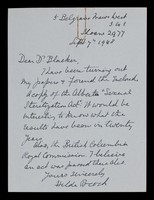 8 Belgrave Mews West
S.W.1
Sloane 2477
Sept 7th 1948
Dear Dr Blacker,
I have been turning out
my papers & found the enclosed,
a copy of the Alberta "Sexual
Sterilization Act". It would be
interesting to know what the
results have been in twenty
years.
Also, the British Columbia
Royal Commission. I believe
an act was passed there also
Yours sincerely
Hilda